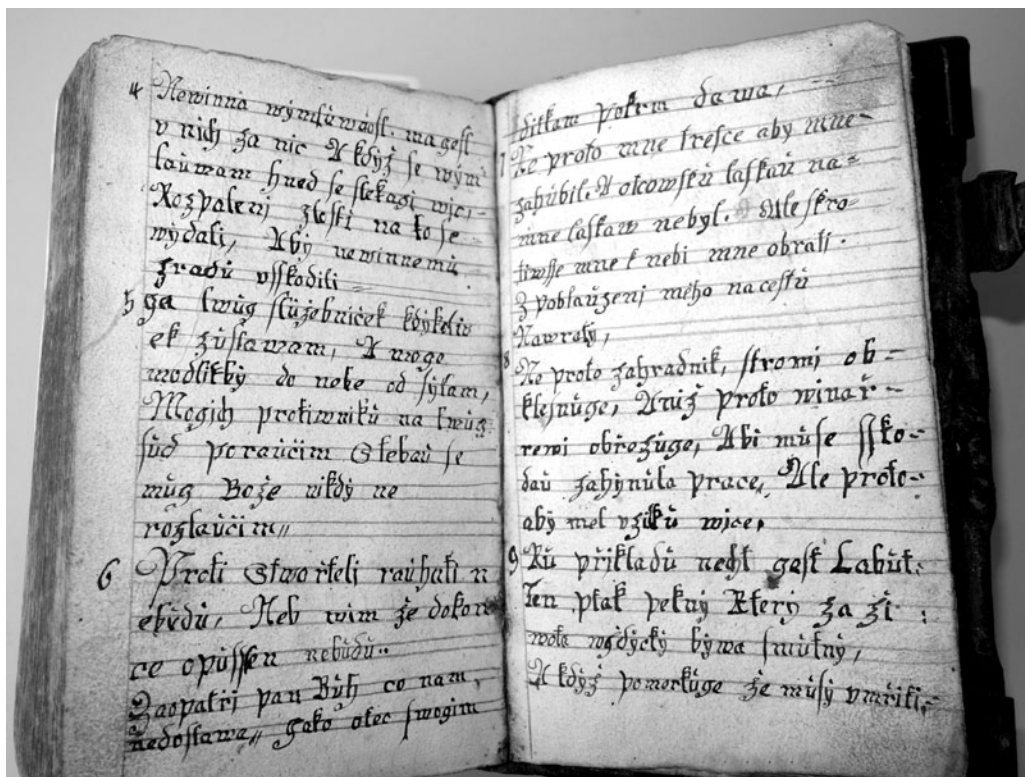 4 Newinna wýmlúwaost. ma gest
v nich za nic A když se wým
lauwam hned se stekagi wjc,
Rozpalenj zlosti na to se
wýdali, Abý newinnemů
zradů vsskodili
5 ga twůg služebniček kdýkoliw
ek zůstawam, A moge
modlitbý do nebe od sýlam,
Mogich protiwniků na twůg
sůd poraučim S tebaů se
můg Bože nikdý ne
rozlaučim,,
6 Proti Stwořteli rauhati n
ebudů, Neb wim že dokon
ce opůssťen nebůdů..
Zaopatři pan Bůh co nam,
nedostawa,, Gako otec swogim
ditkam pokrm dawa,
7 Ne proto mne tresce aby mne-
zahůbil. A otcowsků laskaů na=
mne laskaw nebyl. Ale skro-
tiwsse mne k nebi mne obrati.
Z poblaůzenj mého na cestů
Nawratý,
8 Ne proto zahradnik, stromi ob-
klesnůge, Aniž proto winař-
rewi obřezůge, Abi můse ssko-
daů zahýnůla prace, Ale proto-
aby mel vžitků wjce,
9 Ků přikladů necht gest Labůt.
Ten ptak pekný Který za ži:
wota wždýcký býwa smůtný,
A kdýž pomertůge že můsý vmřiti,